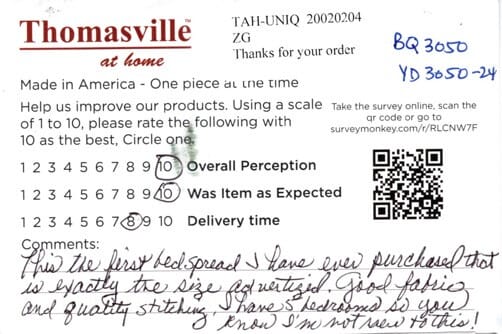 Thomasville™
at home
TAH-UNIQ 20020204
ZG
Thanks for your order
BQ3050
YD3050-24
Made in America - One piece at the time
Help us improve our products. Using a scale
of 1 to 10, please rate the following with
10 as the best, Circle one.
Take the survey online, scan the
qr code or go to
surveymonkey.com/r/RLCNW7F
1 2 3 4 5 6 7 8 9 10 Overall Perception
1 2 3 4 5 6 7 8 9 10 Was Item as Expected
1 2 3 4 5 6 7 8 9 10 Delivery time
Comments:
This the first bedspread I have ever purchased that
is exactly the size advertized. Good fabric
and quality stitching. I have 5 bedrooms so you
know I'm not new to this!